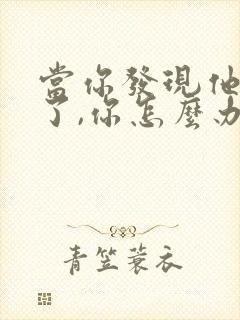 當你發現他
了,你怎麼办
青笠蓑衣